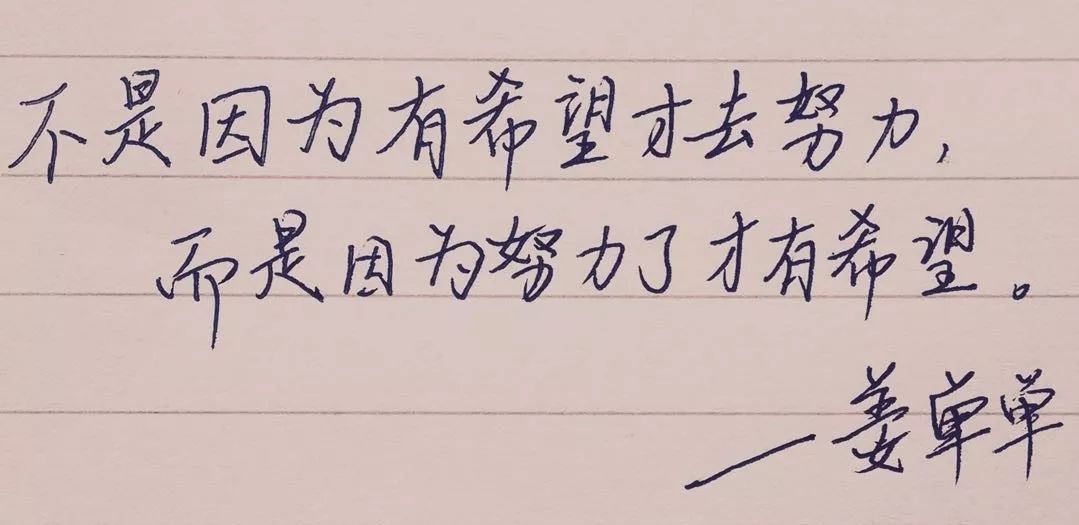 不是因为有希望才去努力,
而是因为努力了才有希望。
—姜单单